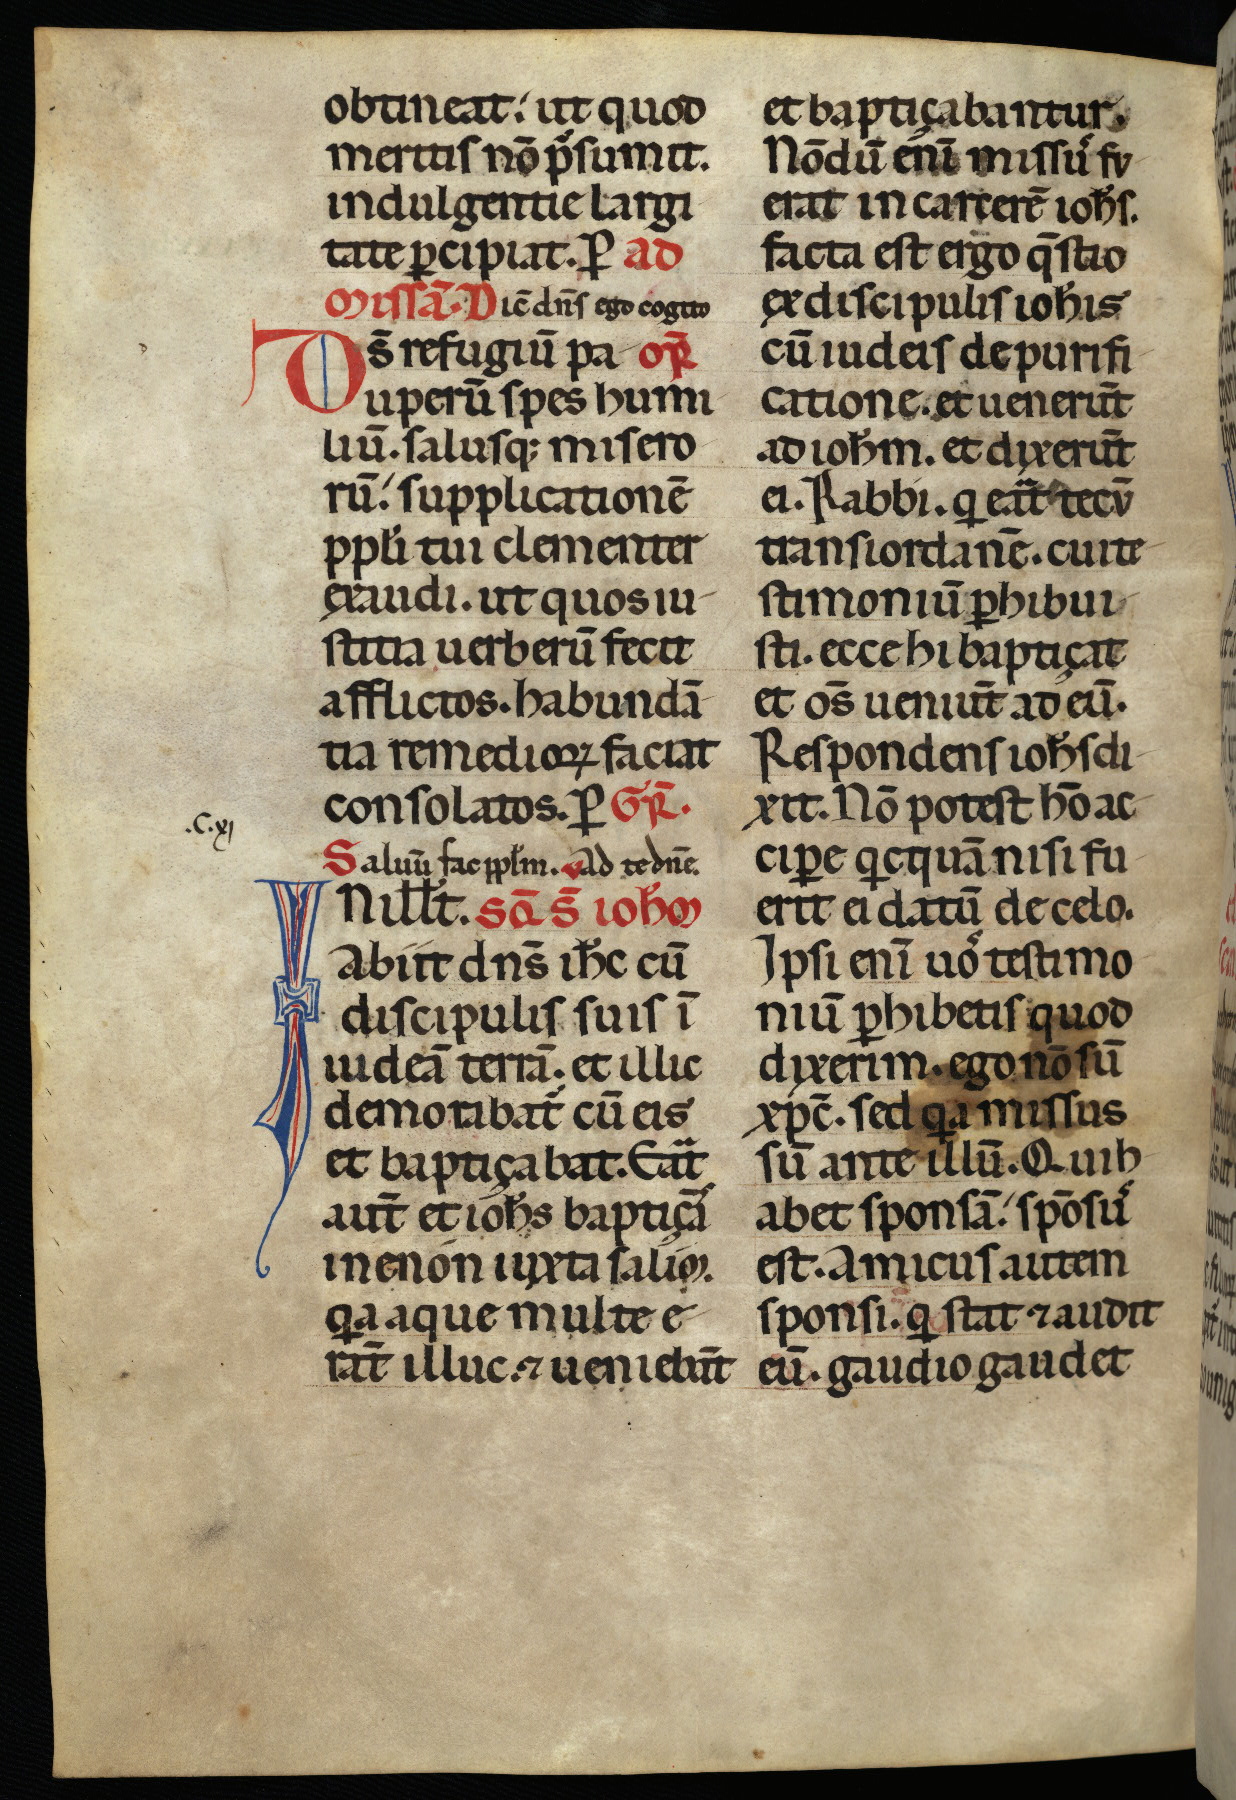 obtineat. ut quod
meritis nō p̄sumit.
indulgentie largi
tate p̱cipiat. P̱ ad
missā. Dic̄ dn̄s ego cogito
Ds̄ refugiū pa or̄
uperū spes humi
liū. salusq; misero
rū. supplicationē
ppl̄i tui clementer
exaudi. ut quos iu
stitia uerberū fecit
afflictos. habundā
tia remedioꝝ faciat
consolatos. P̱ Gr̄.
Saluū fac ppl̄m. v Ad te dn̄e.
.C.xj
IN ill̄t. sc̄a s̄ ioh̄m
Abiit dn̄s ih̄c cū
discipulis suis ī
iudeā terrā. et illic
demorabat᷑ cū eis
et baptiçabat. Erāt
aut̄ et ioh̄s baptiçās
in enon iuxta salim.
q̱a aque multe e
rāt illuc. ⁊ ueniebāt
et baptiçabantur.
Nōdū enī missu᷒ fu
erat in carcerē ioh̄s.
facta est ergo q̄stio
ex discipulis ioh̄is
cū iudeis de purifi
catione. et uenerūt
ad ioh̄m. et dixerūt
ei. Rabbi. q̱ erāt tecū
transiordanē. cui te
stimoniū p̱hibui
sti. ecce hi baptiçat
et oms̄ ueniūt ad eū.
Respondens ioh̄s di
xit. Nō potest h̄o ac
cip̱e q̱cquā nisi fu
erit ei datū de celo.
Ipsi enī uo᷒ testimo
niū p̱hibetis quod
dixerim. ego nō sū
xp̄c. sed q̱a missus
sū ante illū. Qui h
abet sponsā. spōsu᷒
est. Amicus autem
sponsi. q̱ stat ⁊ audit
eū. gaudio gaudet